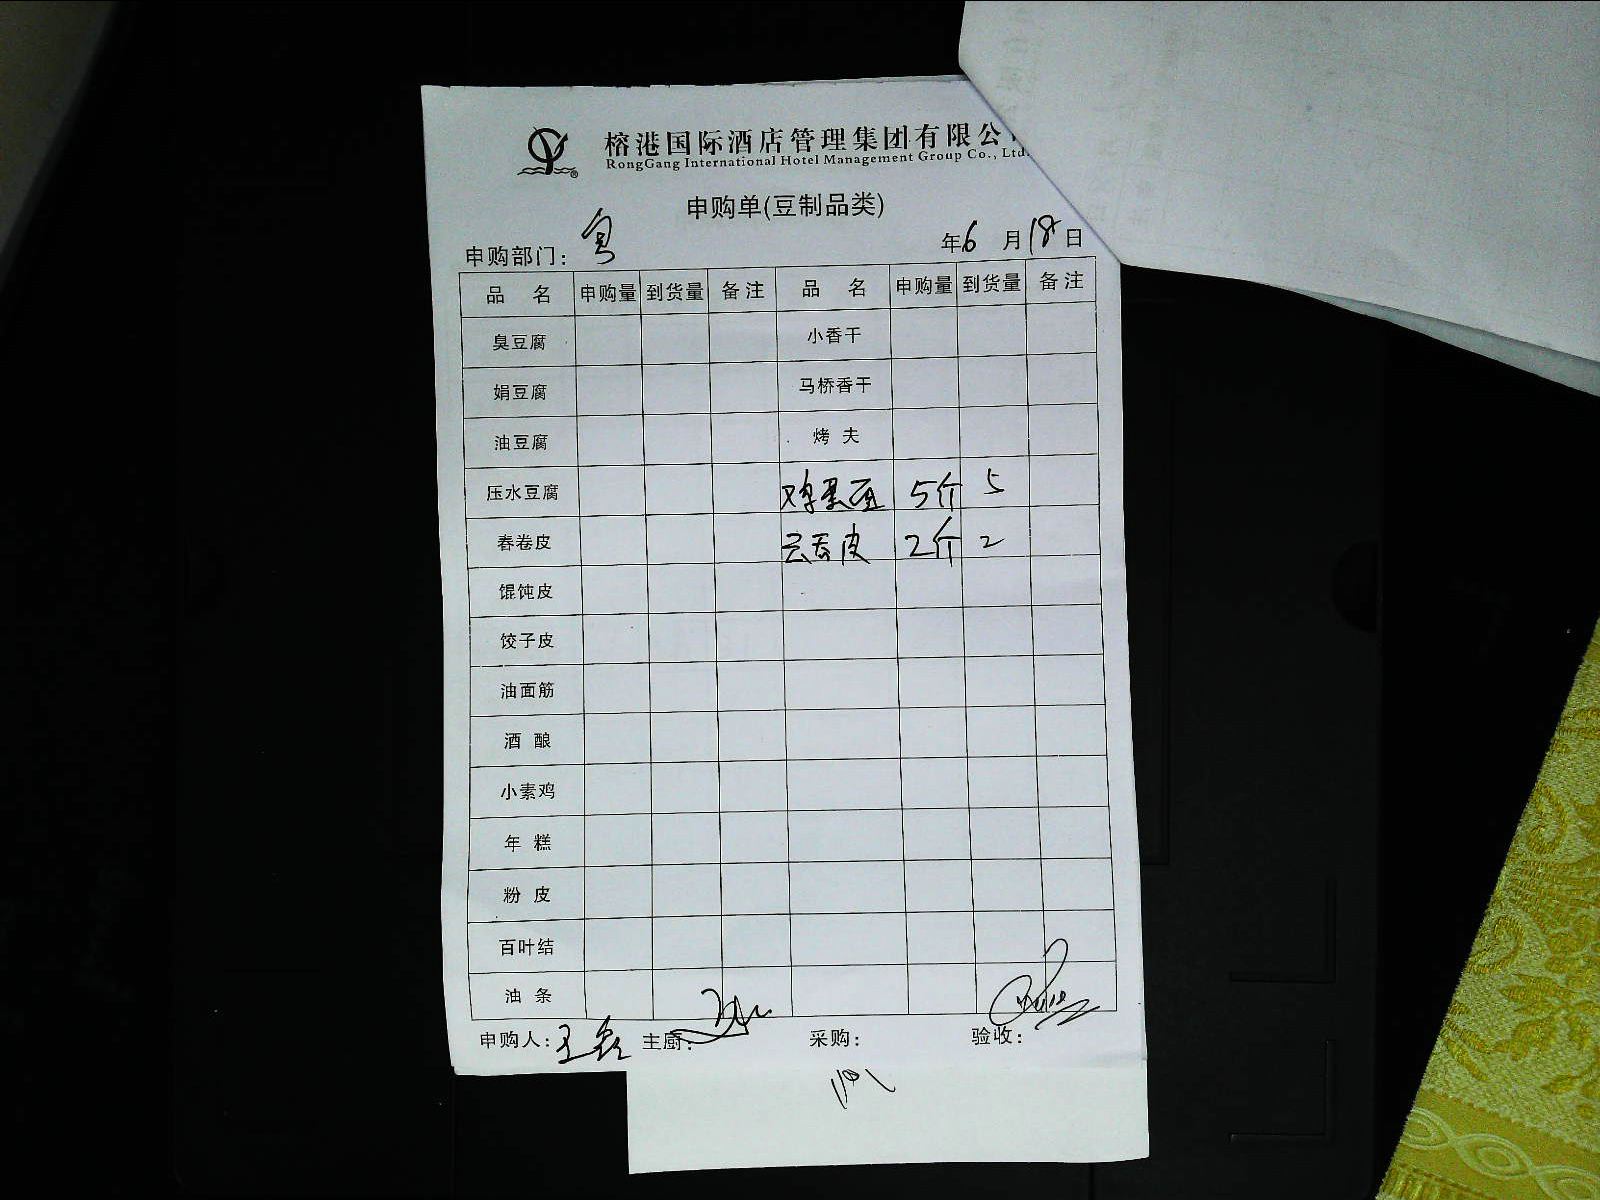 榕港国际酒店管理集团有限公
RongGang International Hotel Management Group Co., Ltd.
申购单(豆制品类)
申购部门: 粤 年6月18日
品 名 申购量 到货量 备注 品 名 申购量 到货量 备注
臭豆腐 小香干
娟豆腐 马桥香干
油豆腐 烤 夫
压水豆腐 鸡蛋面 5斤 5
春卷皮 云吞皮 2斤 2
馄饨皮
饺子皮
油面筋
酒 酿
小素鸡
年 糕
粉 皮
百叶结
油 条
申购人: 王磊 主厨: 采购: 验收: